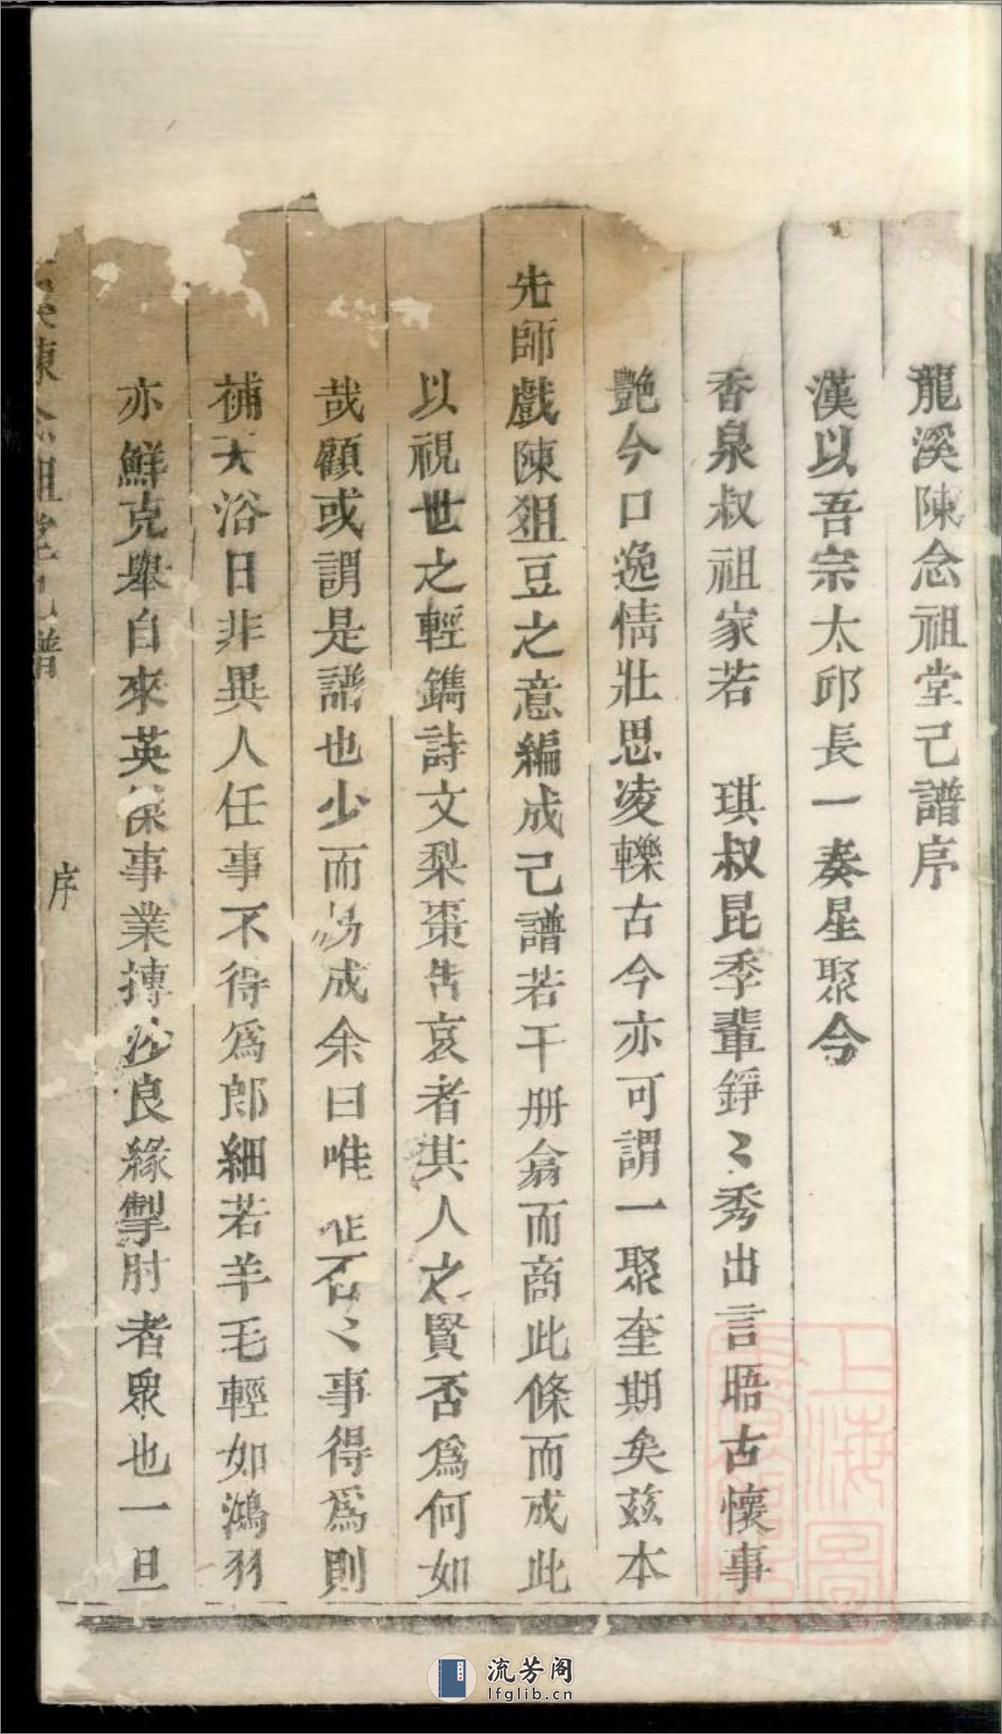 龍溪陳念祖堂己譜序
漢以吾宗太邱長一奏星聚今
香泉叔祖家若　琪叔昆季輩錚〻秀出言晤古懷事
艷今口逸情壯思凌轢古今亦可謂一聚奎期矣茲本
先師戲陳俎豆之意編成己譜若干册翕而商此條而成此
以視世之輕鐫詩文梨棗告哀者其人之賢否爲何如
哉顧或謂是譜也少而成余曰唯〻事得爲則
補天浴日非異人任事不得爲郎細若羊毛輕如鴻羽
亦鮮克舉自來英事業摶沙良緣掣肘者衆也一旦
陳
譜
序
上海圖
流芳阁
lfglib.cn